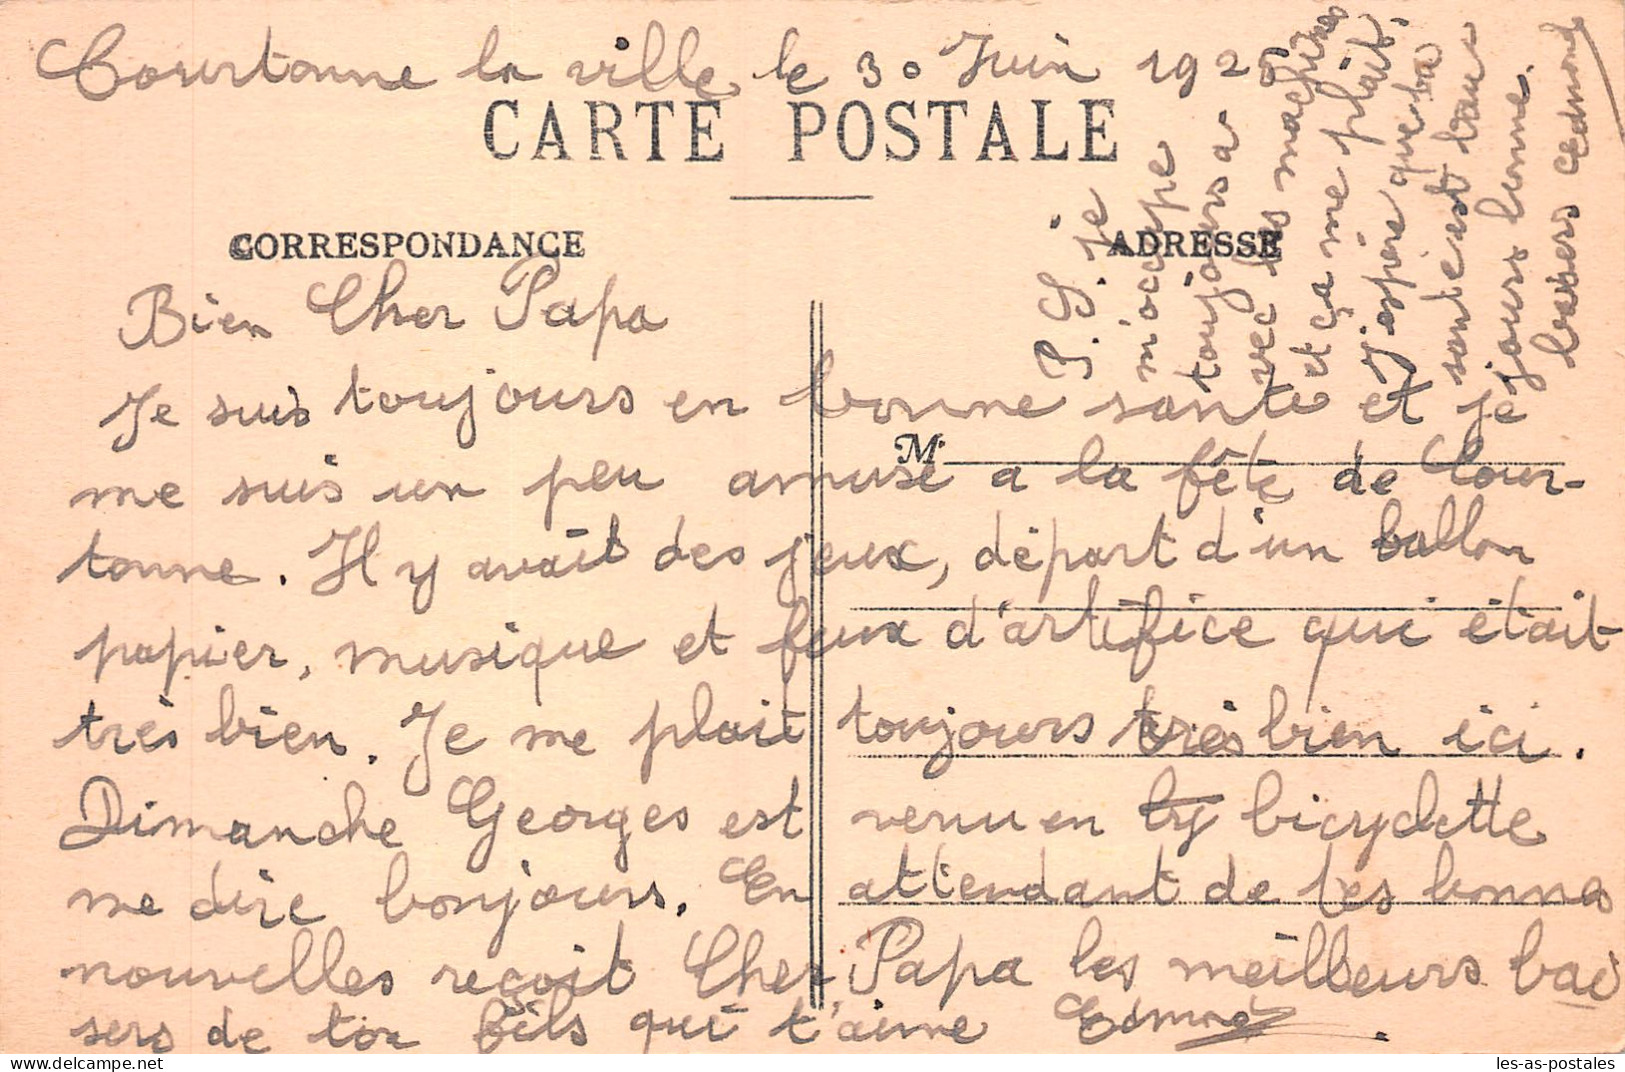 Courtonne la ville le 30 Juin 192
CARTE POSTALE
CORRESPONDANCE
ADRESSE
Bien Cher Papa
Je suis toujours en bonne sante et je
M.
me suis un peu amusé a la fête de Cour-
tonne. Il y avait des jeux, départ d'un ballon
papier, musique et feux d'artifice qui était
très bien. Je me plait toujours très bien ici.
Dimanche Georges est venu en by bicyclette
me dire bonjours. En attendant de tes bonnes
nouvelles reçoit Cher Papa les meilleurs bai
sers de ton fils qui t'aime Edmond
P. S. je
m'occupe
toujours a
vec les machines
et ça me plait.
J'espère que ta
santé est tou
jours bonne.
baisers Edmond
les-as-postales